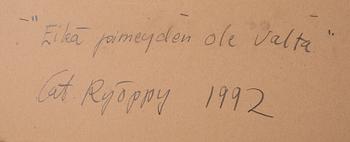 "Eikä pimeyden ole valta"
Cat. Ryöppy 1992